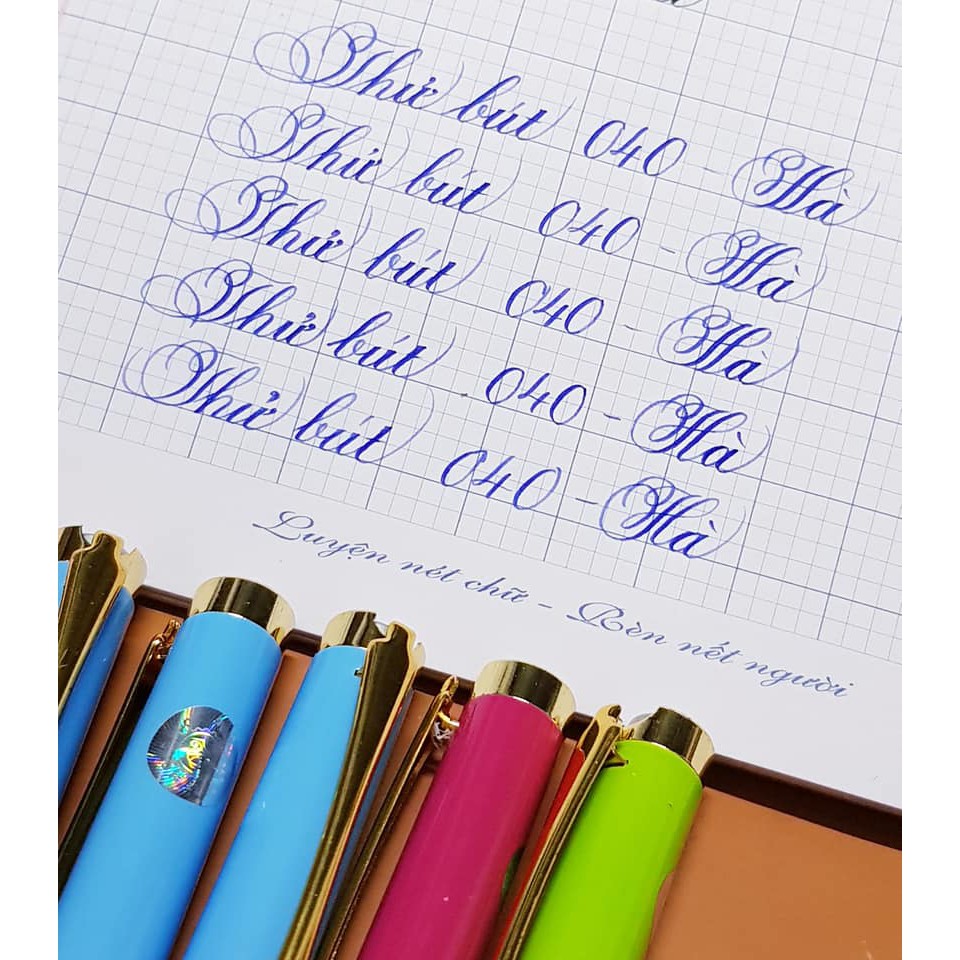 Thử bút 040 - Hà
Thử bút 040 - Hà
Thử bút 040 - Hà
Thử bút 040 - Hà
Thử bút 040 - Hà
Luyện nét chữ - Rèn nết người